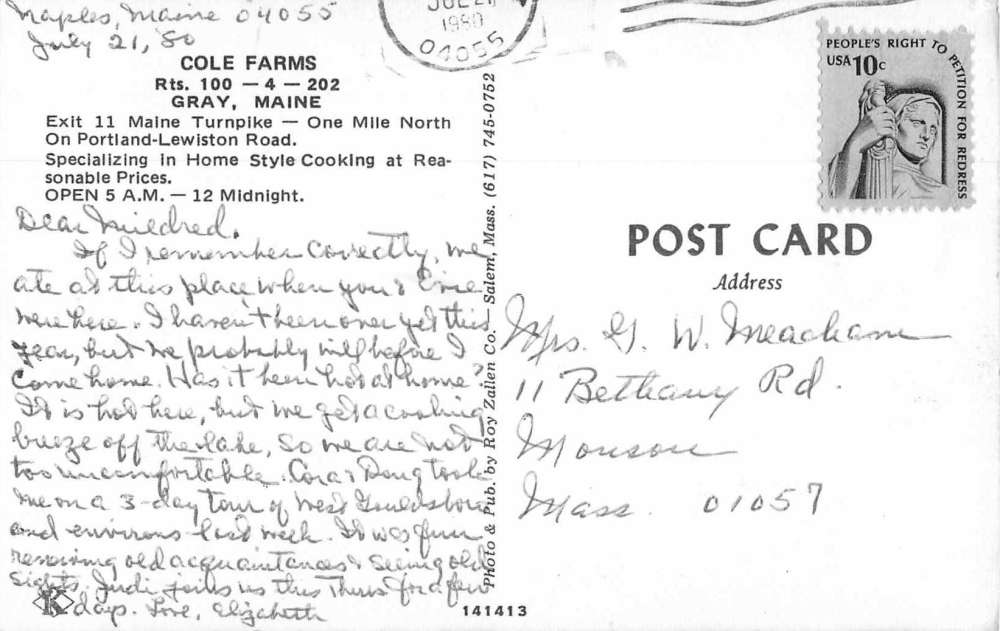 Naples, Maine 04055
July 21, '80
COLE FARMS
Rts. 100 — 4 — 202
GRAY, MAINE
Exit 11 Maine Turnpike — One Mile North
On Portland-Lewiston Road.
Specializing in Home Style Cooking at Rea-
sonable Prices.
OPEN 5 A.M. — 12 Midnight.
Dear Mildred,
If I remember correctly, we
ate at this place when you &
were here. I haven't been over yet this
year, but we probably will before I
come home. Has it been hot at home?
It is hot here, but we get a cooling
breeze off the lake, so we are not
too uncomfortable. Cora & Doug took
me on a 3-day tour of West
and environs last week. It was fun
renewing old acquaintances & seeing old
sights. Judi joins us this Thurs for a few
days. Love, Elizabeth
Photo & Pub. by Roy Zallen Co. — Salem, Mass. (617) 745-0752
141413
JUL 21
1980
04055
PEOPLE'S RIGHT TO PETITION FOR REDRESS
USA 10c
POST CARD
Address
Mrs. G. W. Meacham
11 Bethany Rd.
Monson
Mass. 01057